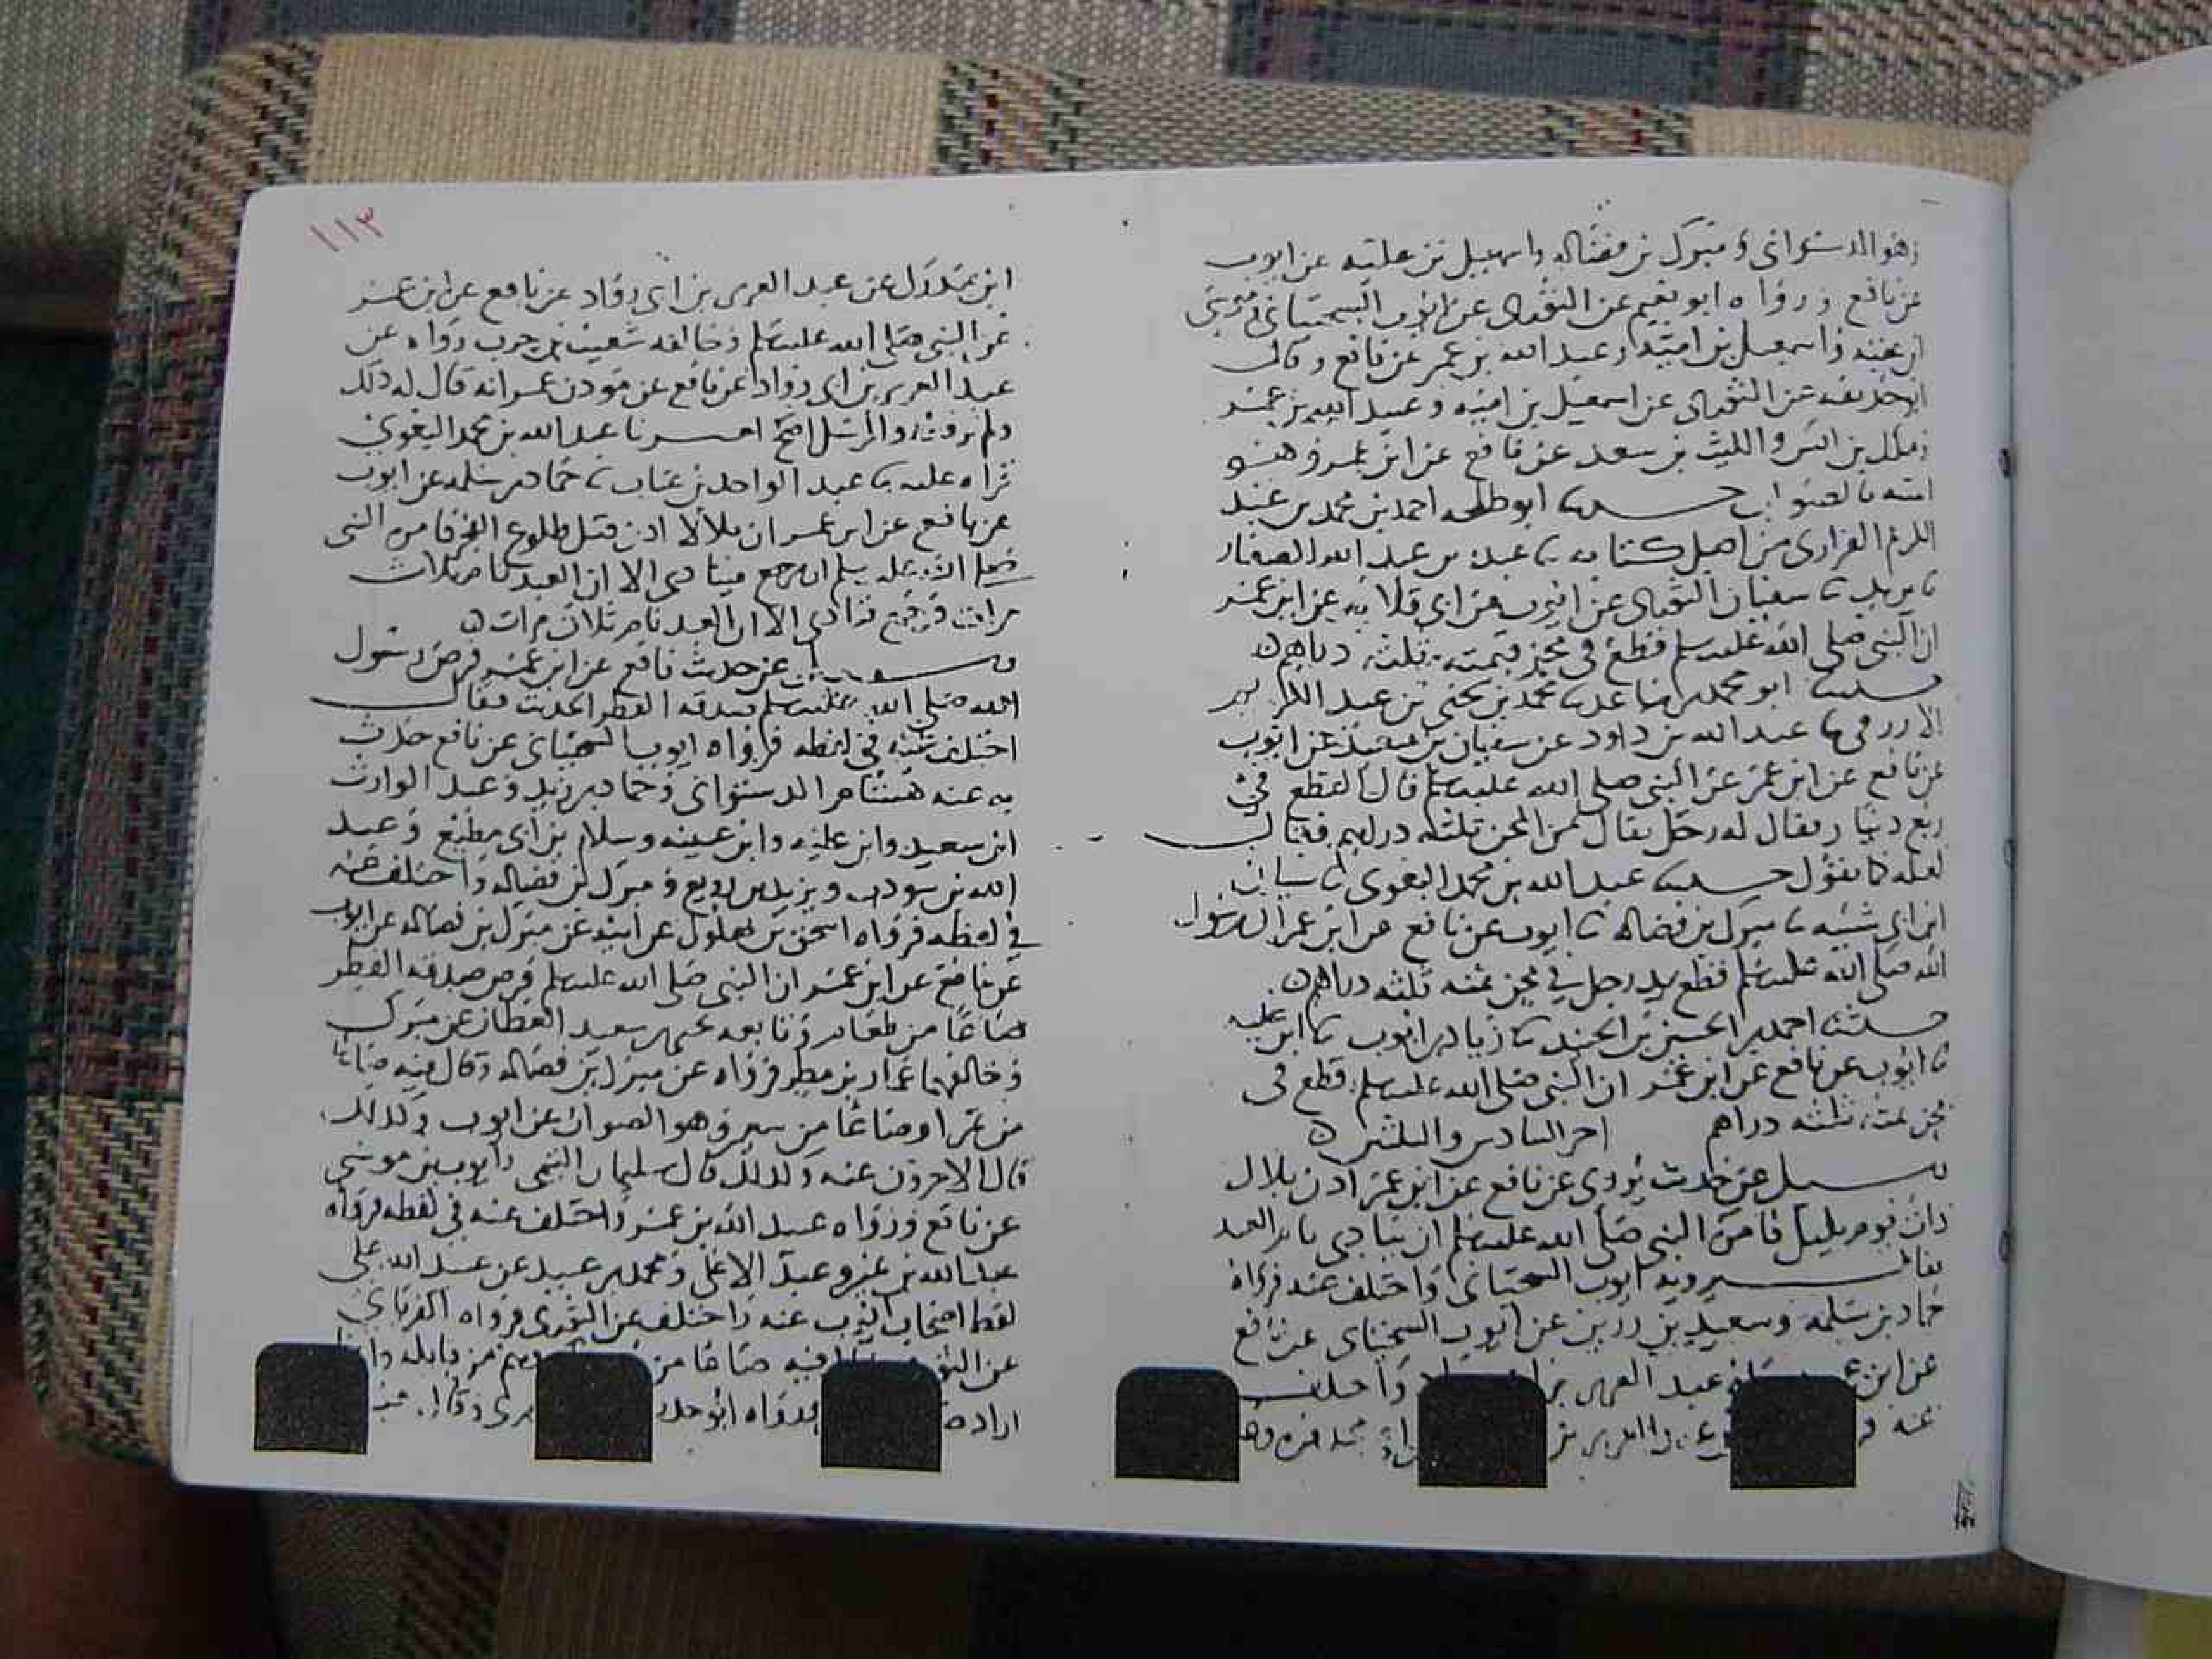 وهو الدستواى ومبرك بن فضاله واسمعيل بن عليه عن ايوب
عن نافع ورواه ابو نعيم عن الثورى عن ايوب السختيانى
واسمعيل بن اميه وعبد الله بن عمر عن نافع وقال
ابو حذيفه عن الثورى عن اسمعيل بن اميه وعبيد الله بن عمر
وملك بن انس والليث بن سعد عن نافع عن ابن عمر وهو
اشبه بالصواب حدثنا ابو طلحه احمد بن محمد بن عبد
الكريم الفزارى من اصل كتابه عبده بن عبد الله الصفار
يزيد سفيان الثورى عن ايوب عن ابى قلابه عن ابن عمر
ان النبى صلى الله عليه وسلم قطع فى مجن قيمته ثلثه دراهم
حدثنا ابو محمد بن صاعد محمد بن يحيى بن عبد الكريم
الازدى عبد الله بن داود عن سفيان بن سعيد عن ايوب
عن نافع عن ابن عمر عن النبى صلى الله عليه وسلم قال القطع فى
ربع دينار فقال له رجل يقال ثمن المجن ثلثه دراهم فقال
لعله كما تقول حدثنا عبد الله بن محمد البغوى شيبان
ابن ابى شيبه مبرك بن فضاله ايوب عن نافع عن ابن عمر ان رسول
الله صلى الله عليه وسلم قطع يد رجل فى مجن ثمنه ثلثه دراهم
حدثنا احمد بن الحسين بن الجنيد زياد بن ايوب ابن عليه
ايوب عن نافع عن ابن عمر ان النبى صلى الله عليه وسلم قطع فى
مجن ثمنه ثلثه دراهم اخر السادس والثلثين
وسئل عن حديث يروى عن نافع عن ابن عمر اذن بلال
بليل فامره النبى صلى الله عليه وسلم ان ينادى نام العبد
فقال يرويه ايوب السختيانى واختلف عنه فرواه
حماد بن سلمه وسعيد بن زربى عن ايوب السختيانى عن نافع
عن ابن عبد العزيز بن واختلف
عنه
١١٣
عن عبد العزيز بن ابى رواد عن نافع عن ابن عمر
عن النبى صلى الله عليه وسلم وخالفه شعيب بن حرب رواه عن
عبد العزيز بن ابى رواد عن نافع عن موذن عمر انه قال له ذلك
ولم يرفعه والمرسل اصح اخبرنا عبد الله بن محمد البغوى
قراه عليه عبد الواحد بن غياث حماد بن سلمه عن ايوب
عن نافع عن ابن عمر ان بلالا اذن قبل طلوع الفجر فامره النبى
صلى الله عليه وسلم ان يرجع فينادى الا ان العبد نام ثلاث
مرات فرجع فنادى الا ان العبد نام ثلاث مرات
وسئل عن حديث نافع عن ابن عمر فرض رسول
الله صلى الله عليه وسلم صدقه الفطر الحديث فقال
اختلف عنه فى لفظه فرواه ايوب السختيانى عن نافع حدث
به عنه هشام الدستواى وحماد بن زيد وعبد الوارث
ابن سعيد وابن عليه وابن عيينه وسلام بن ابى مطيع وعبد
الله بن شوذب ويزيد بن زريع ومبرك بن فضاله واختلف عنه
فى لفظه فرواه اسحق بن بهلول عن ابيه عن مبرك بن فضاله عن ايوب
عن نافع عن ابن عمر ان النبى صلى الله عليه وسلم فرض صدقه الفطر
صاعا من طعام وتابعه سعيد العطار عن مبرك
وخالفهما عمار بن مطر فرواه عن مبرك بن فضاله وقال فيه صاعا
من تمر او صاعا من شعير وهو الصواب عن ايوب وكذلك
قال الاخرون عنه وكذلك قال سليمان التيمى وايوب بن موسى
عن نافع ورواه عبيد الله بن عمر واختلف عنه فى لفظه فرواه
عبد الله بن نمير وعبد الاعلى ومحمد بن عبيد عن عبيد الله على
لفظ اصحاب ايوب عنه واختلف عن الثورى فرواه الفريابى
عن فيه صاعا من
اراد فرواه ابو